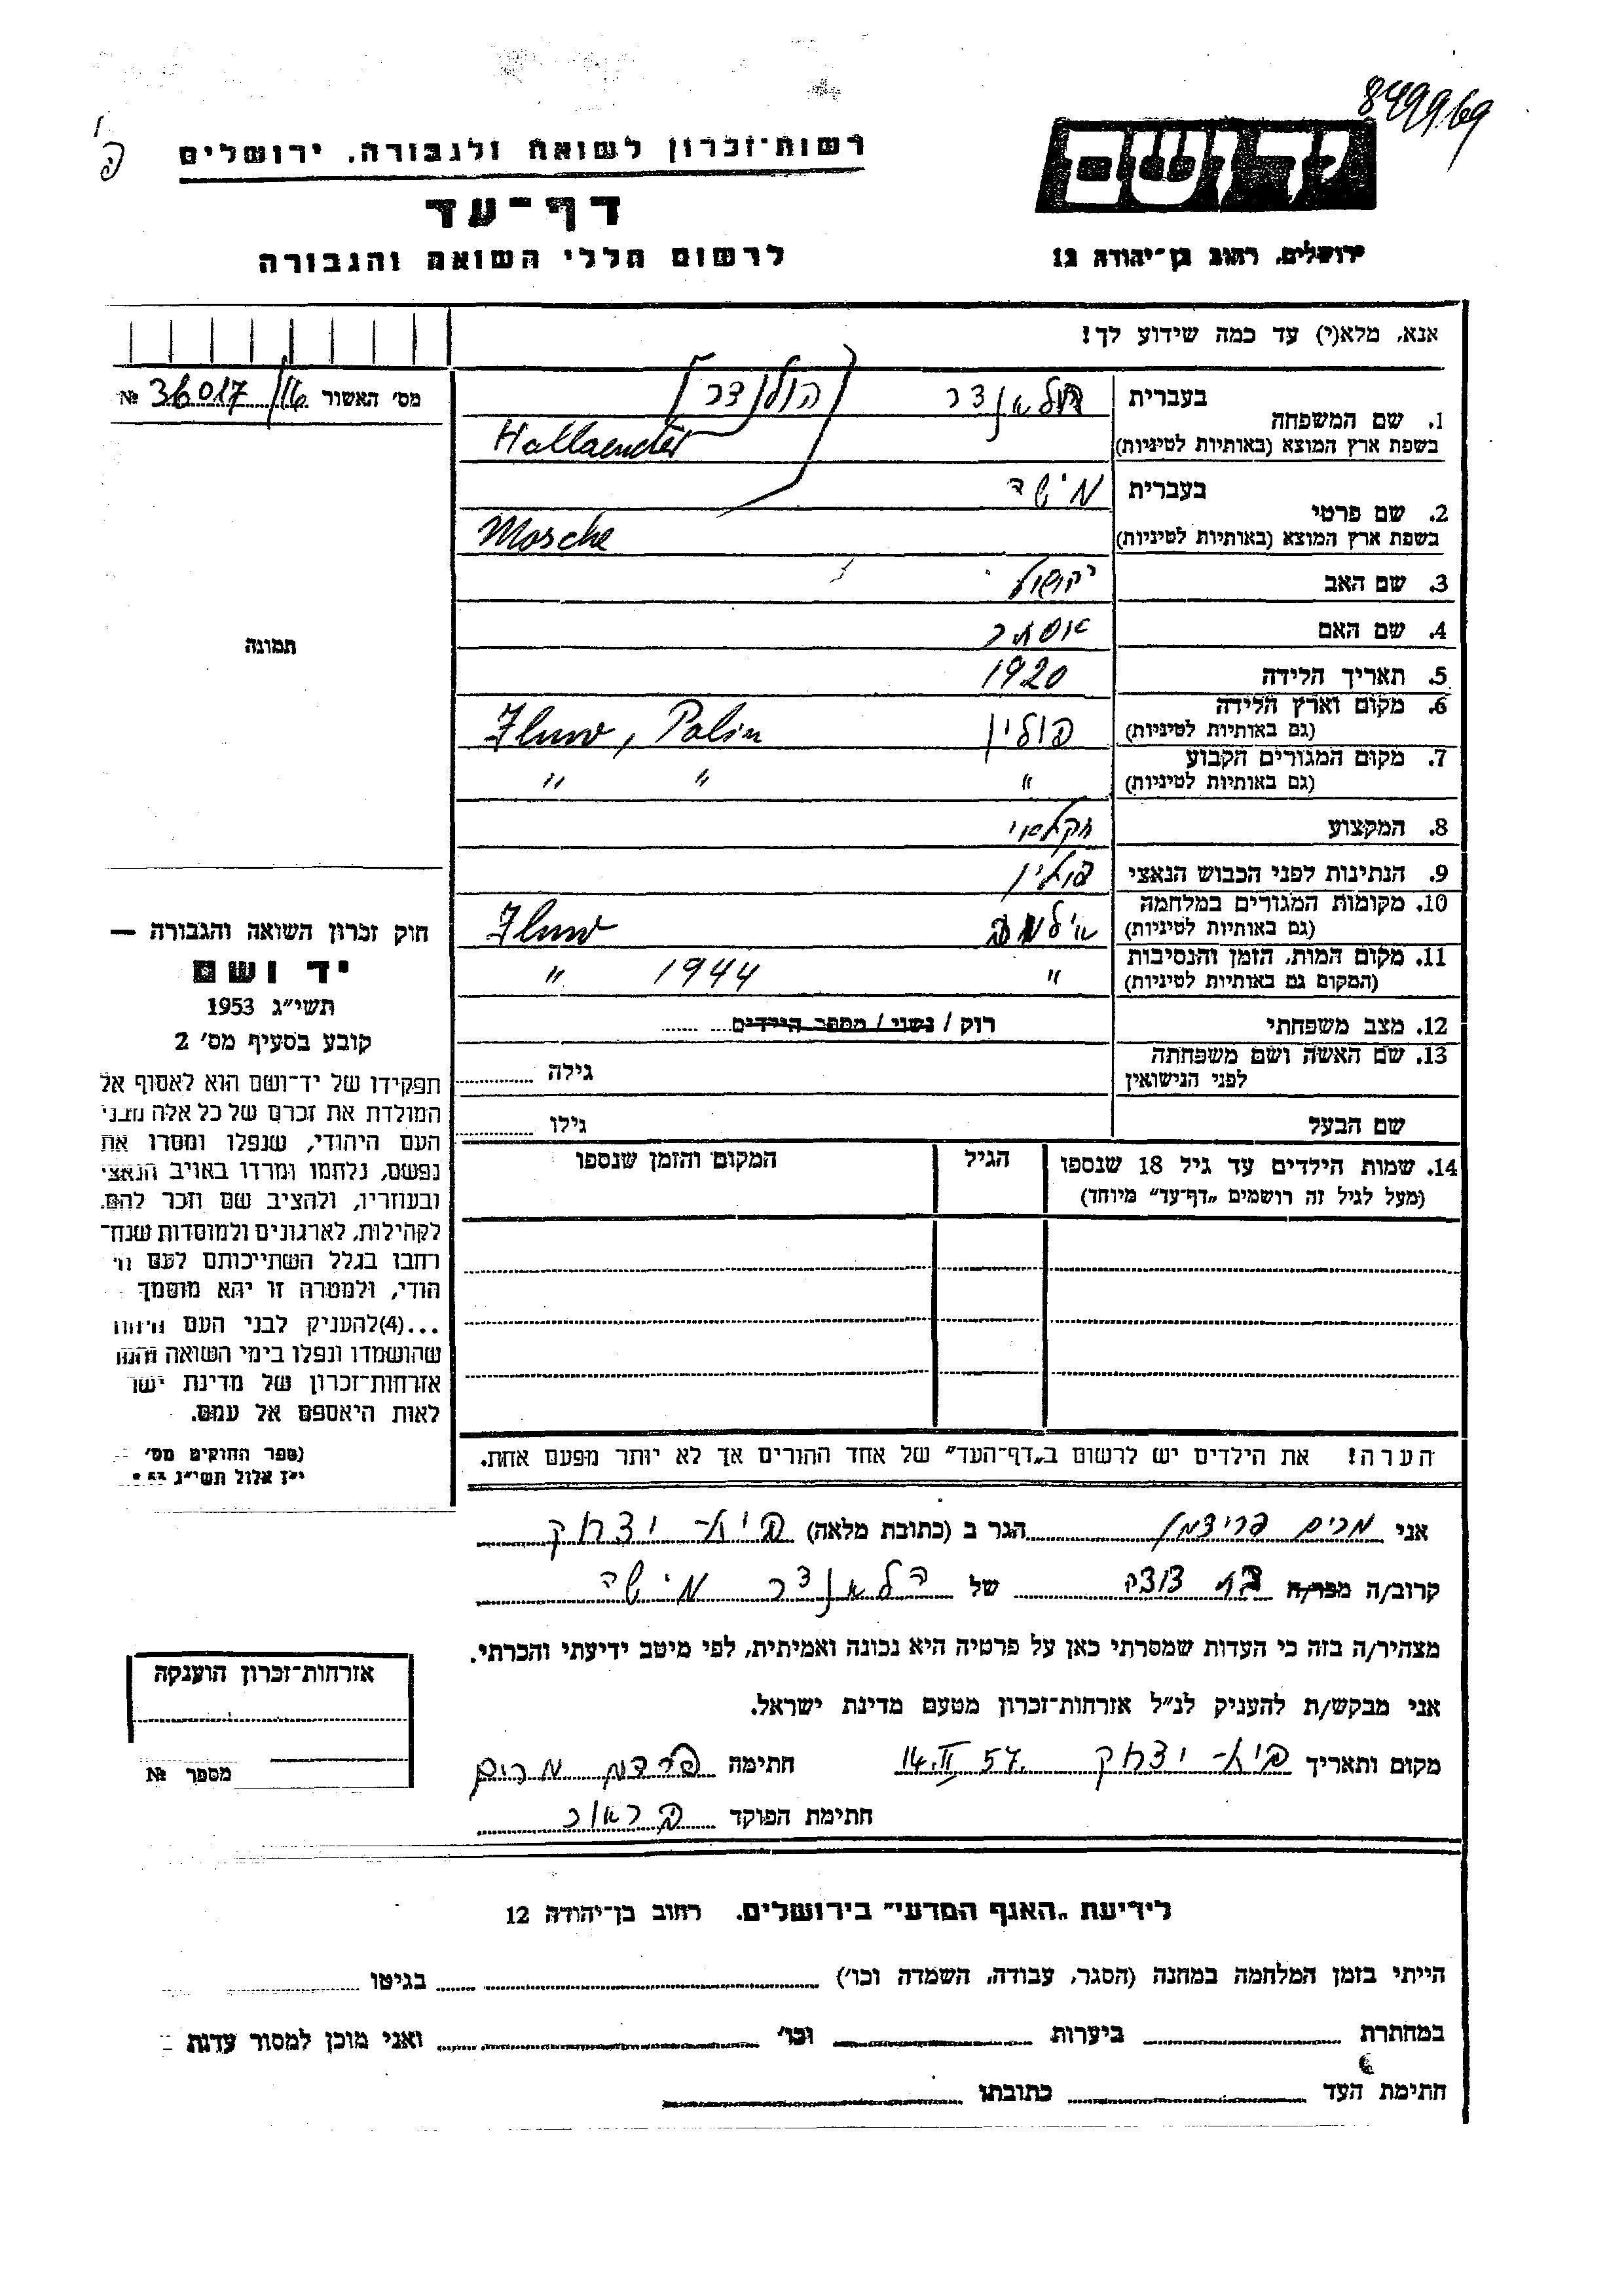 849969
רשות־זכרון לשואה ולגבורה, ירושלים
דף־עד
לרשום חללי השואה והגבורה
ידושם
ירושלים, רחוב בן־יהודה 12
אנא, מלא(י) עד כמה שידוע לך!
מס׳ האשור 36017/116 №
1. שם המשפחה
בעברית הולאנדר [הולנדר]
בשפת ארץ המוצא (באותיות לטיניות) Hollaender
2. שם פרטי
בעברית מישה
בשפת ארץ המוצא (באותיות לטיניות) Mosche
3. שם האב
4. שם האם אסתר
5. תאריך הלידה 1920
6. מקום וארץ הלידה
(גם באותיות לטיניות) פולין Iluw, Polin
7. מקום המגורים הקבוע
(גם באותיות לטיניות) " " "
8. המקצוע חקלאי
9. הנתינות לפני הכבוש הנאצי פולין
10. מקומות המגורים במלחמה
(גם באותיות לטיניות) Iluw
11. מקום המות, הזמן והנסיבות
(המקום גם באותיות לטיניות) " 1944 "
12. מצב משפחתי רוק / נשוי / מספר הילדים
13. שם האשה ושם משפחתה
לפני הנישואין גילה
שם הבעל גילו
14. שמות הילדים עד גיל 18 שנספו
(מעל לגיל זה רושמים „דף־עד” מיוחד)
הגיל
המקום והזמן שנספו
הערה! את הילדים יש לרשום ב„דף־העד” של אחד ההורים אך לא יותר מפעם אחת.
תמונה
חוק זכרון השואה והגבורה —
יד ושם
תשי״ג 1953
קובע בסעיף מס׳ 2
תפקידו של יד־ושם הוא לאסוף אל
המולדת את זכרם של כל אלה מבני
העם היהודי, שנפלו ומסרו את
נפשם, נלחמו ומרדו באויב הנאצי
ובעוזריו, ולהציב שם וזכר להם,
לקהילות, לארגונים ולמוסדות שנח־
רחבו בגלל השתייכותם לעם הי
הודי, ולמטרה זו יהא מוסמך
...(4)להעניק לבני העם היהודי
שהושמדו ונפלו בימי השואה והמרי
אזרחות־זכרון של מדינת ישר
לאות היאספם אל עמם.
(ספר החוקים מס׳
י״ז אלול תשי״ג
אני מרים פרידמן הגר ב (כתובת מלאה) בית־יצחק
קרוב/ה מכר/ה בת דודה של הלאנדר מישה
מצהיר/ה בזה כי העדות שמסרתי כאן על פרטיה היא נכונה ואמיתית, לפי מיטב ידיעתי והכרתי.
אני מבקש/ת להעניק לנ״ל אזרחות־זכרון מטעם מדינת ישראל.
מקום ותאריך בית־יצחק 14.II 57. חתימה פרידמן מרים
חתימת הפוקד
אזרחות־זכרון הוענקה
מספר №
לידיעת „האגף המדעי” בירושלים, רחוב בן־יהודה 12
הייתי בזמן המלחמה במחנה (הסגר, עבודה, השמדה וכו׳) בגיטו
במחתרת ביערות וכו׳ ואני מוכן למסור עדות
חתימת העד כתובתו